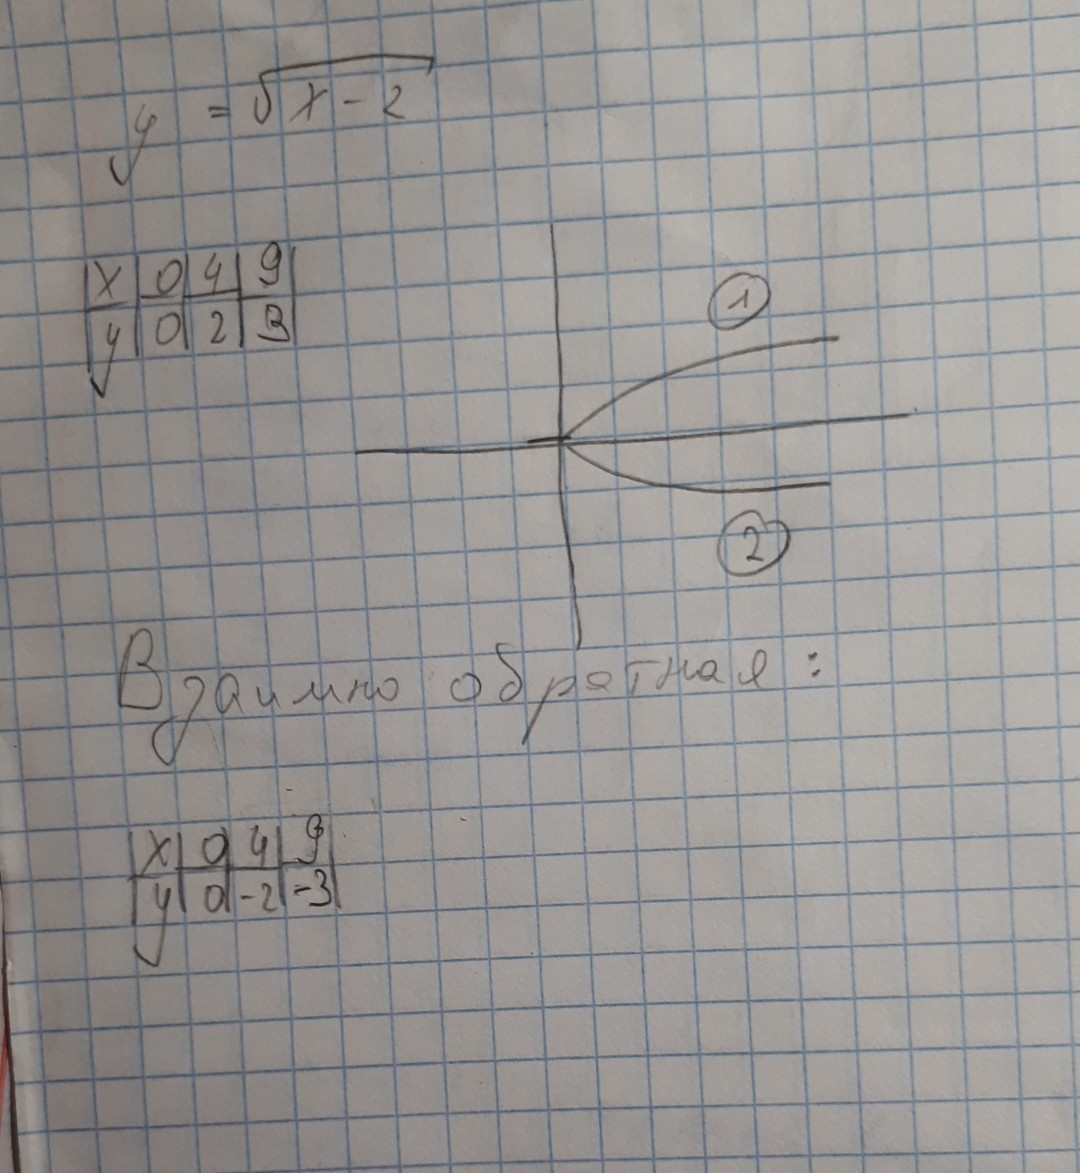 y = √x - 2
x 0 4 9
y 0 2 3
1
2
Взаимно обратная :
x 0 4 9
y 0 -2 -3